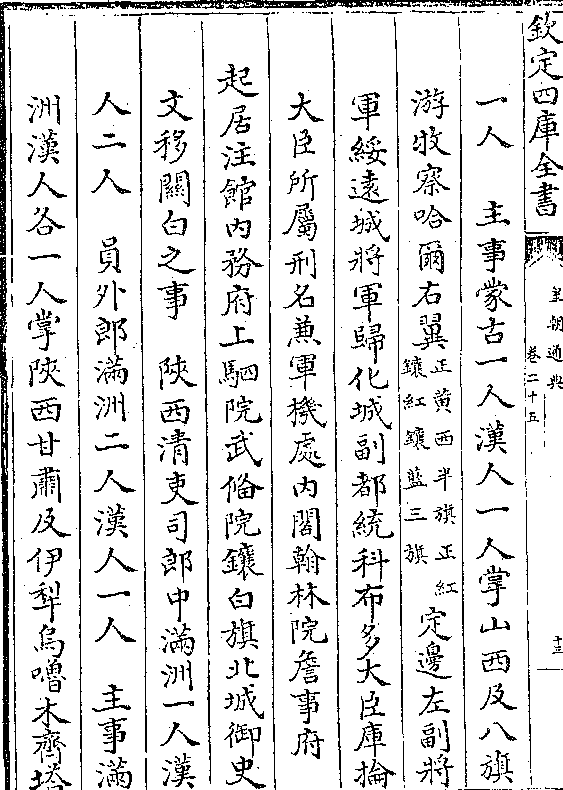 欽定四庫全書
皇朝通典
卷二十五
十三
一人　主事蒙古一人漢人一人掌山西及八旗
游牧察哈爾右翼正黃西半旗正紅鑲紅鑲藍三旗定邊左副將
軍綏遠城將軍歸化城副都統科布多大臣庫掄
大臣所屬刑名兼軍機處内閣翰林院詹事府
起居注館内務府上駟院武備院鑲白旗北城御史
文移關白之事　陜西清吏司郎中滿洲一人漢
人二人　員外郎滿洲二人漢人一人　主事滿
洲漢人各一人掌陜西甘肅及伊犁烏嚕木齊塔